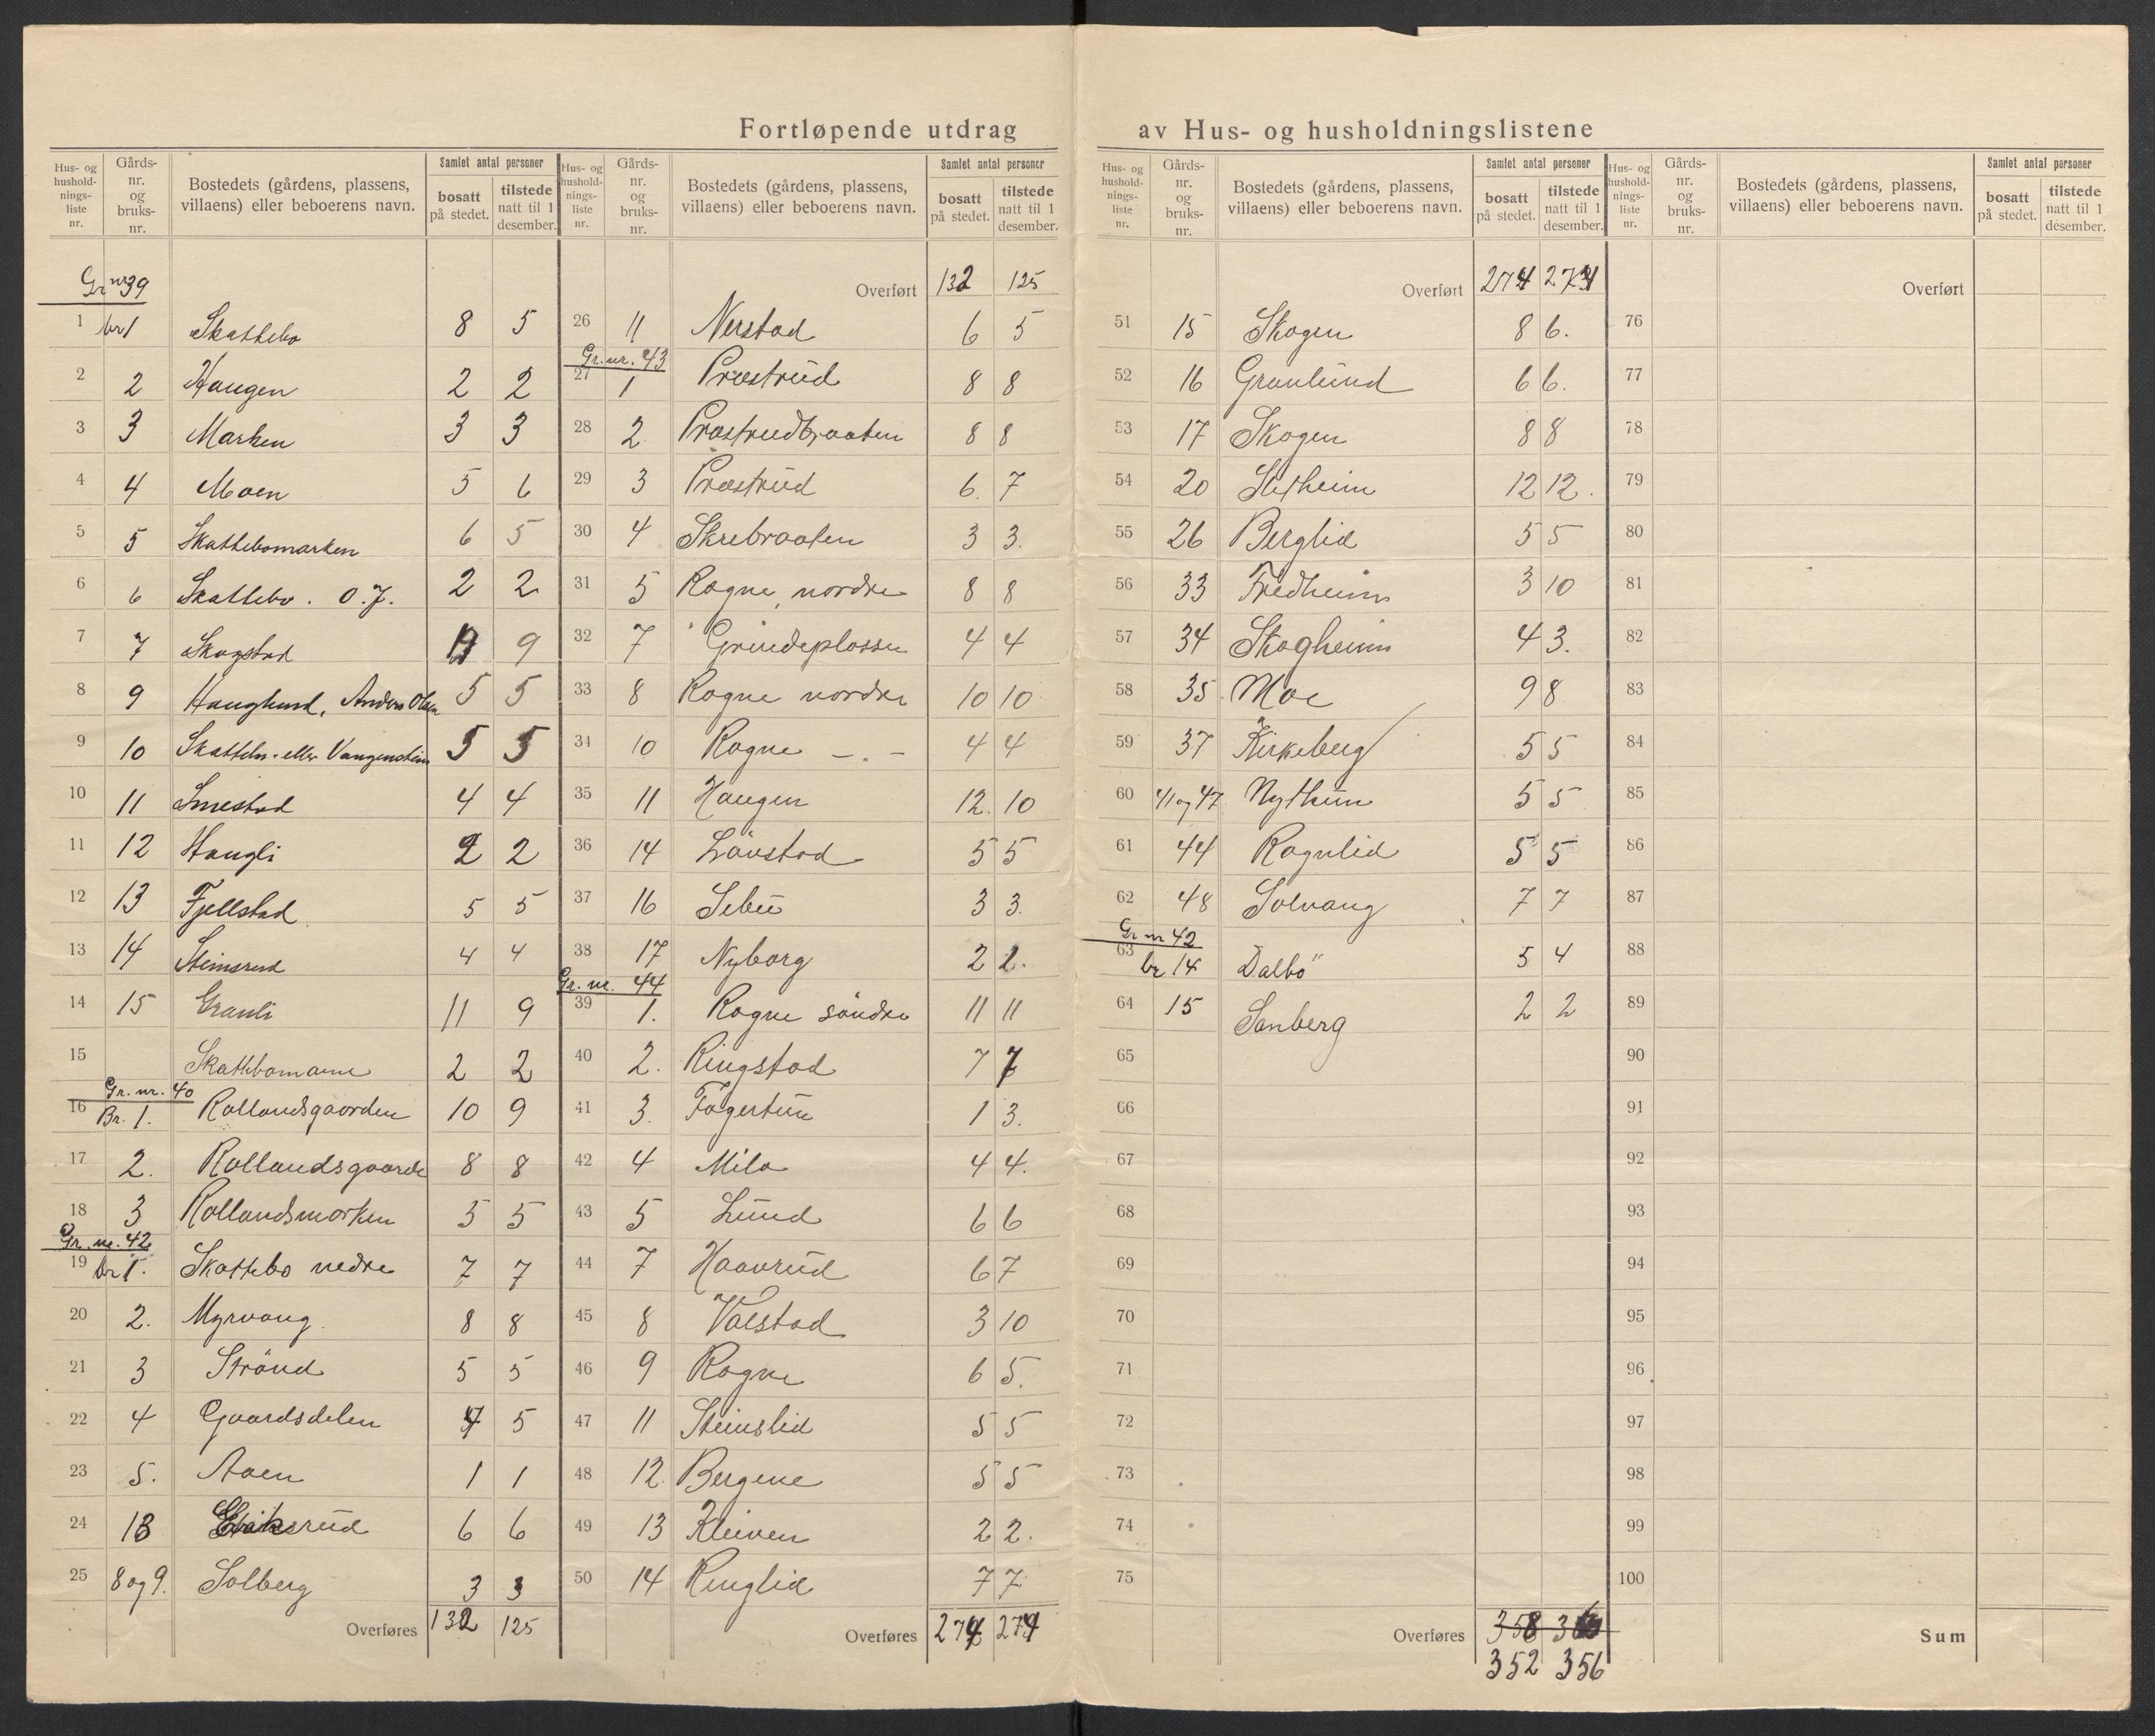 Fortløpende utdrag av Hus- og husholdningslistene
Hus- og husholdnings- liste nr. | Gårds- nr. og bruks- nr. | Bostedets (gårdens, plassens, villaens) eller beboerens navn. | Samlet antal personer | bosatt på stedet. | tilstede natt til 1 desember.
Gr nr 39
1 br 1 Skattebo 8 5
2 2 Haugen 2 2
3 3 Marken 3 3
4 4 Moen 5 6
5 5 Skattebomarken 6 5
6 6 Skattebo. O.J. 2 2
7 7 Skogstad 9
8 9 Hauglund, Anders Olsen 5 5
9 10 Skattebo eller Vangenstein 5 5
10 11 Smestad 4 4
11 12 Haugli 2 2
12 13 Fjellstad 5 5
13 14 Steinsrud 4 4
14 15 Granli 11 9
15 Skattebomoene 2 2
Gr. nr. 40
16 Br. 1. Rollandsgaarden 10 9
17 2. Rollandsgaarde 8 8
18 3 Rollandsmarken 5 5
Gr. nr. 42
19 br 1. Skattebo nedre 7 7
20 2. Myrvang. 8 8
21 3 Strönd 5 5
22 4 Gaardsdelen 5
23 5. Aaen 1 1
24 13 Eriksrud 6 6
25 8 og 9. Solberg 3 3
Overføres 132 125
Hus- og husholdnings- liste nr. | Gårds- nr. og bruks- nr. | Bostedets (gårdens, plassens, villaens) eller beboerens navn. | Samlet antal personer | bosatt på stedet. | tilstede natt til 1 desember.
Overført 132 125
26 11 Nerstad 6 5
Gr. nr. 43
27 1 Præstrud 8 8
28 2 Præstrudbraaten 8 8
29 3 Præstrud 6. 7
30 4 Skrebraaten 3 3.
31 5 Rogne nordre 8 8
32 7 Grindeplassen 4 4
33 8 Rogne nordre 10 10
34 10 Rogne - . - 4 4
35 11 Haugen 12. 10
36 14 Lövstad 5 5
37 16 Sebu 3 3.
38 17 Nyborg 2 2.
Gr. nr. 44
39 1. Rogne söndre 11 11
40 2. Ringstad 7 7
41 3. Fagertun 1 3.
42 4 Mila 4 4.
43 5 Lund 6 6
44 7 Haavrud 6 7
45 8 Valstad 3 10
46 9 Rogne 6 5.
47 11 Steinslid 5 5
48 12. Bergene 5 5
49 13 Kleiven 2 2.
50 14 Ringlid 7 7
Overføres 274 274
Hus- og husholdnings- liste nr. | Gårds- nr. og bruks- nr. | Bostedets (gårdens, plassens, villaens) eller beboerens navn. | Samlet antal personer | bosatt på stedet. | tilstede natt til 1 desember.
Overført 274 274
51 15 Skogen 8 6.
52 16 Granlund 6 6.
53 17 Skogen 8 8
54 20 12 12.
55 26 Berglid 5 5
56 33 Fredheim 3 10
57 34 Skogheim 4 3.
58 35 Moe 9 8
59 37 Kirkeberg 5 5
60 41 og 47 Nythun 5 5
61 44 Rognlid 5 5
62 48 Solvang 7 7
Gr nr 42
63 br 14 Dalbö 5 4
64 15 Sanberg 2 2
65
66
67
68
69
70
71
72
73
74
75
Overføres 358
352 356
Hus- og husholdnings- liste nr. | Gårds- nr. og bruks- nr. | Bostedets (gårdens, plassens, villaens) eller beboerens navn. | Samlet antal personer | bosatt på stedet. | tilstede natt til 1 desember.
Overført
76
77
78
79
80
81
82
83
84
85
86
87
88
89
90
91
92
93
94
95
96
97
98
99
100
Sum